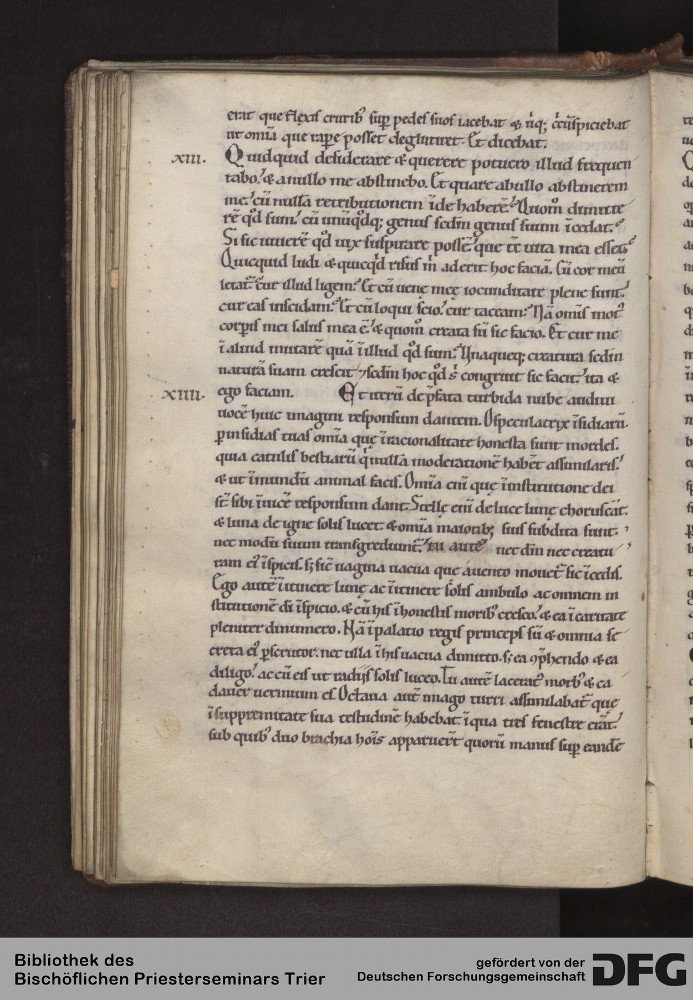 erat que flexis cruribꝰ suꝑ pedes suos iacebat & ccūspiciebat
ut om̄ia que rapere posset deglutiret. Et dicebat.
xiii. Quidquid desiderare & querere potuero illud frequen
tabo. & a nullo me abstinebo. Et quare ab ullo abstinerem
me. cū nullā retributionem īde haberē. Quom̄ dimitte
rē qd̄ sum. cū unūqd̄q; genus sedm̄ genus suum īcedat.
Si sic uiuerē qd̄ uix suspirare possē. que uita mea esset.
Quicquid ludi & quicqd̄ risus m̄ aderit. hoc faciā. Cū cor meū
letat̄. cur illud ligem. Et cū uene mee iocunditate plene sunt.
cur eas inscidam. Et cū loqui scio. cur taceam. Nā om̄is motꝰ
corꝑis mei salus mea ē. & quom̄ creata sū sic facio. Et cur me
ī aliud mutarē quā ī illud qd̄ sum. Vnaqueq; creatura sedm̄
naturā suam crescit ⁊ sedm̄ hoc qd̄ s̄ congruit sic facit. ita &
xiiii. ego faciam. Et iterū de ꝑfata turbida nube audiui
uocē huic imagini responsum dantem. O speculatrix īsidiarū.
ꝑ insidias tuas om̄ia que ī racionalitate honesta sunt mordes.
quia catulis bestiarū qͥ nullā moderationē habēt assimilaris.
& ut īmundū animal facis. Om̄ia eni que ī institutione dei
st̄ sibi īuicē responsum dant. Stelle eni de luce lune choruscāt.
& luna de igne solis lucet. & om̄ia maioribꝫ suis subdita sunt.
nec modū suum transgrediunt̄. tu autē nec dm̄ nec creatu
ram eiꝰ īspicis. sꝫ sic uagina uacua que a uento mouet̄ sic īcedis.
Ego autē ī itinere lune ac ī itinere solis ambulo ac omnem in
stitutionē dī īspicio. & cū his ī honestis moribꝰ cresco. & ea ī caritate
pleniter dinumero. Nā ī palatio regis princeps sū & omnia se
creta eiꝰ ꝑscrutor. nec ulla ī his uacua dimitto. sꝫ ea ꝯphendo & ea
diligo. ac cū eis ut radijs solis luceo. Tu autē laceratꝰ morbꝰ & ca
dauer uermium es. Octaua autē imago turri assimilabat̄ que
ī suppremitate sua testudinē habebat. ī qua tres fenestre erāt.
sub quibꝰ duo brachia hoīs apparuer̄t quorū manus suꝑ eandē
Bibliothek des
Bischöflichen Priesterseminars Trier
gefördert von der
Deutschen Forschungsgemeinschaft
DFG